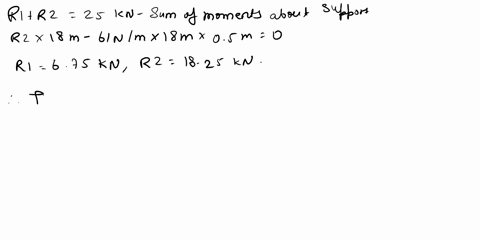 R1+R2 = 25 KN - Sum of moments about suppors
R2 × 18 m - 61N/m × 18 m × 0.5 m = 0
R1 = 6.75 KN, R2 = 18.25 KN.
∴ P